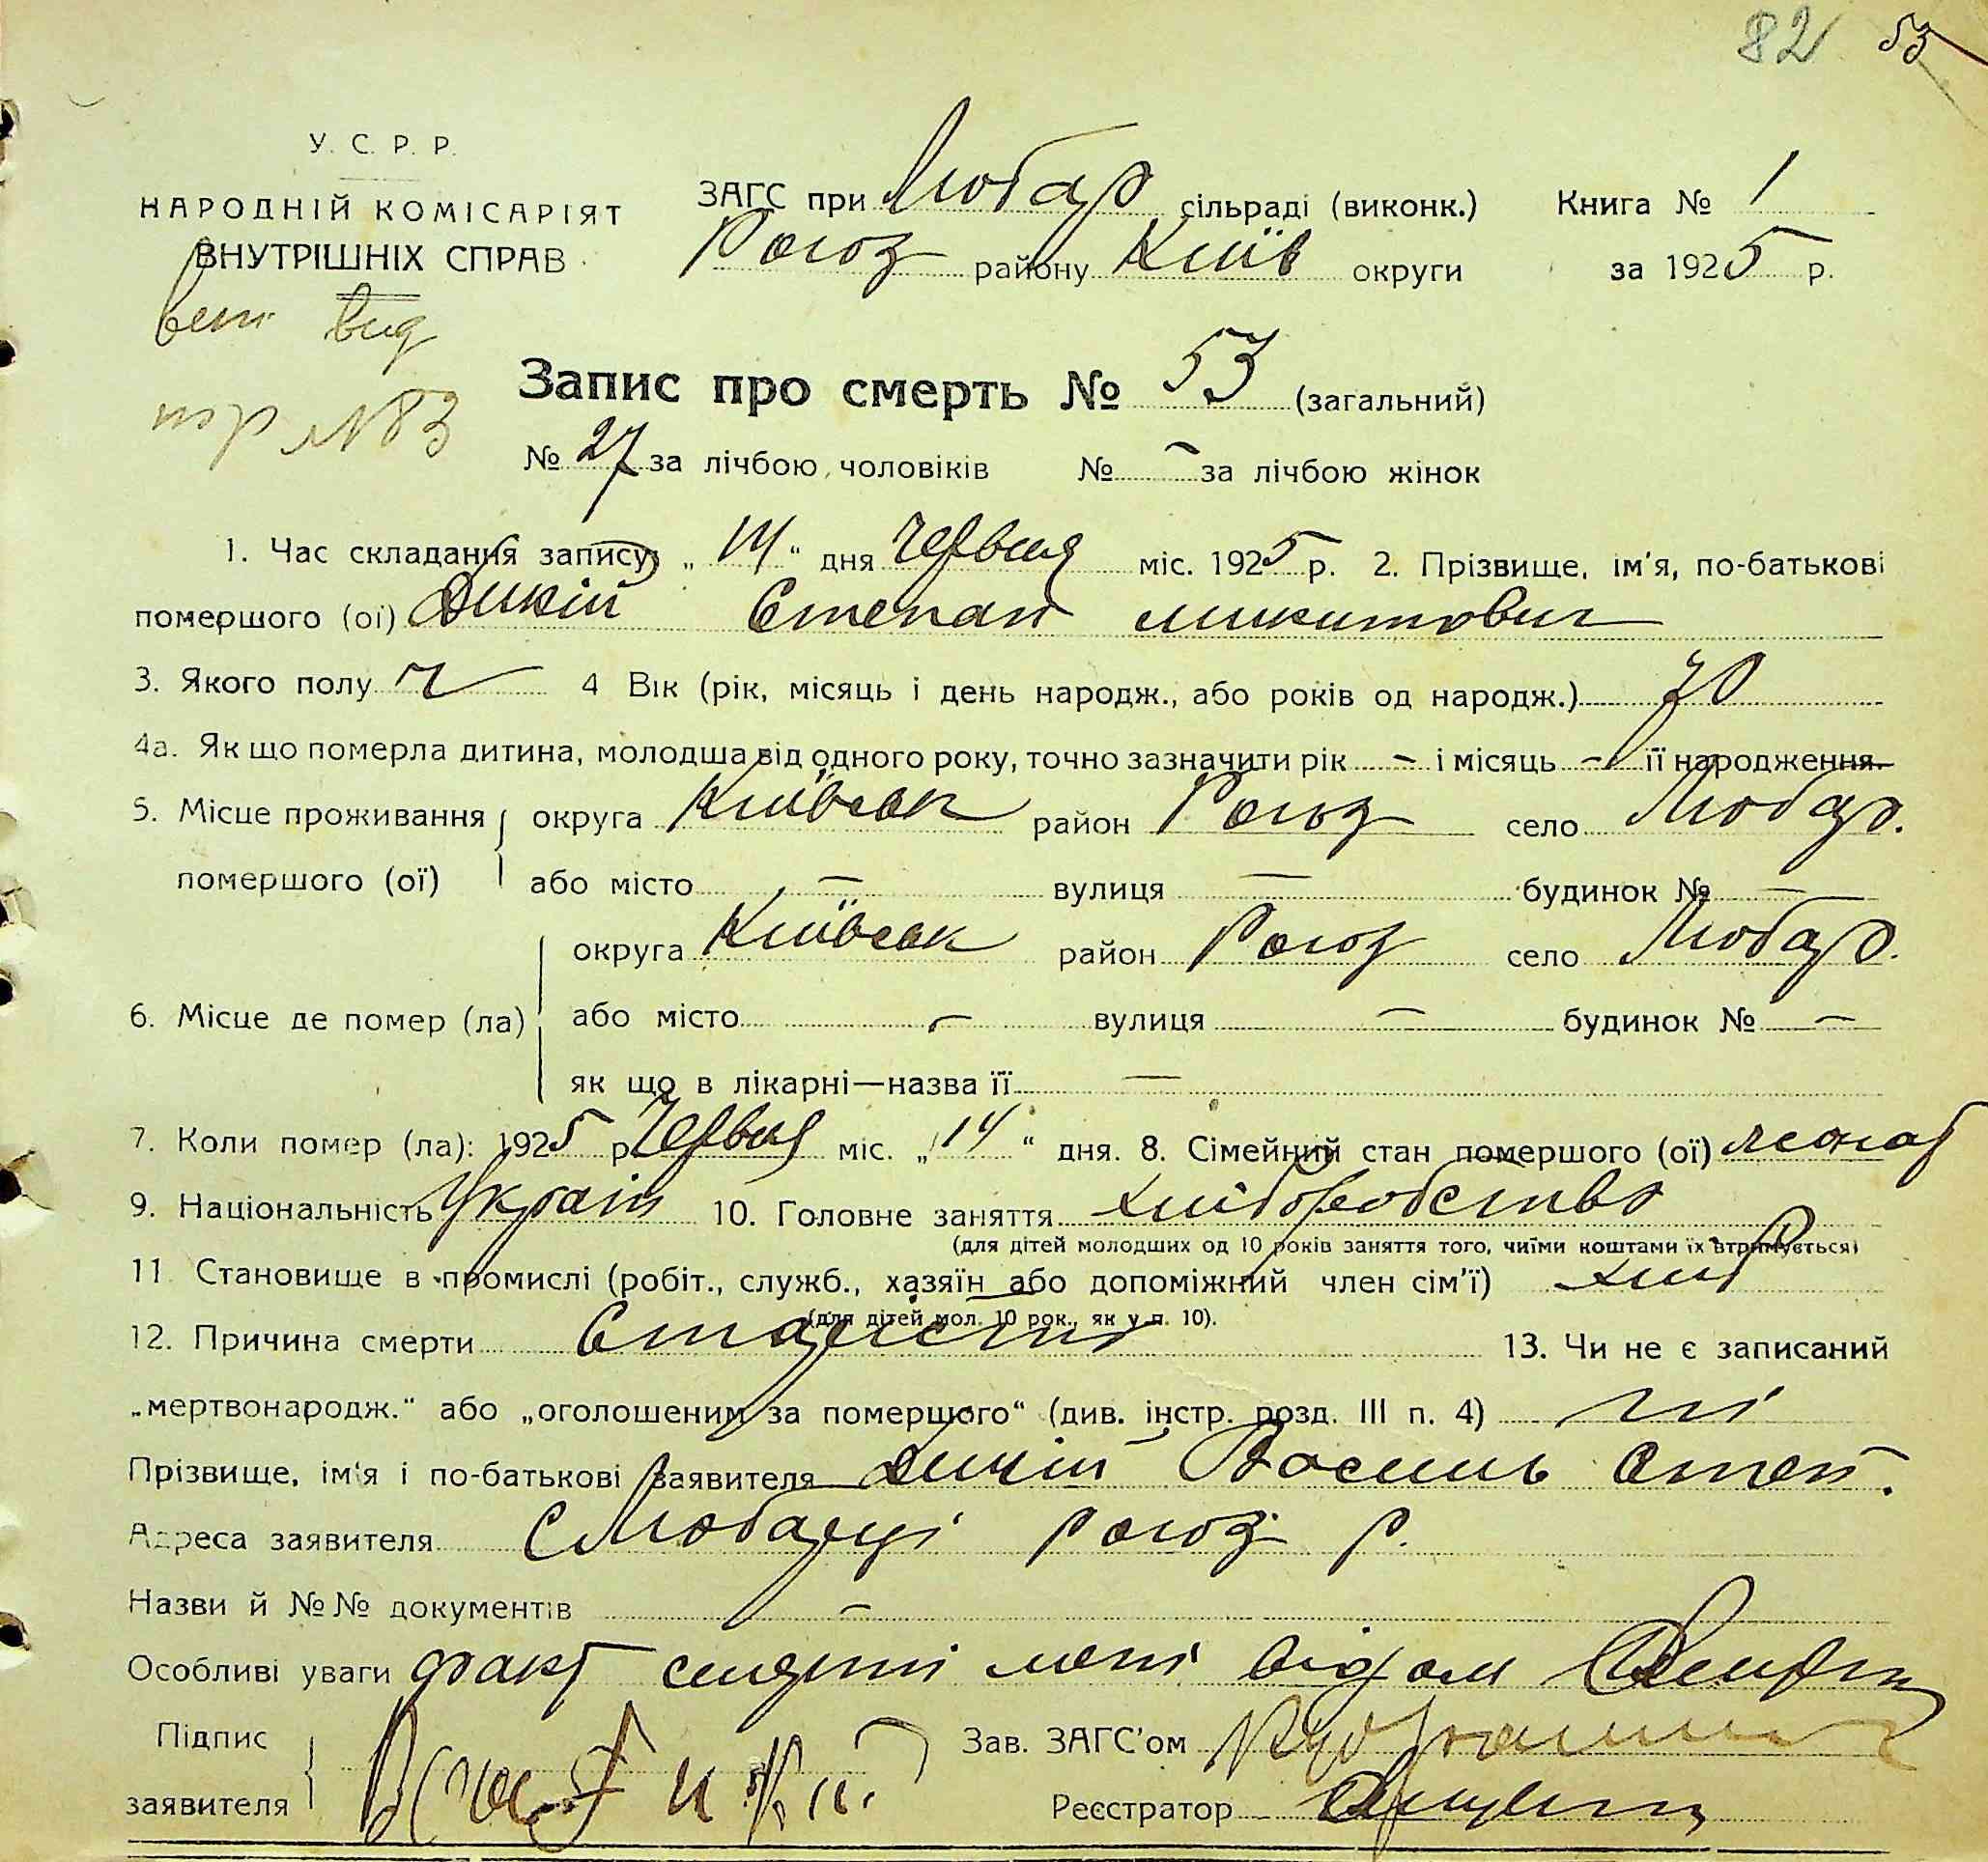 82 53
У. С. Р. Р.
НАРОДНІЙ КОМІСАРІЯТ
ВНУТРІШНІХ СПРАВ
ЗАГС при Любар сільраді (виконк.) Книга № 1
Рогоз району Київ округи за 1925 р.
вид
№83
Запис про смерть № 53 (загальний)
№ 27 за лічбою чоловіків № – за лічбою жінок
1. Час складання запису „14“ дня Червня міс. 1925 р. 2. Прізвище, ім'я, по-батькові
помершого (ої) Дикій Степан микитович
3. Якого полу ч 4 Вік (рік, місяць і день народж., або років од народж.) 70
4а. Як що померла дитина, молодша від одного року, точно зазначити рік – і місяць – її народження.
5. Місце проживання округа Київськ район Рогоз село Любар.
помершого (ої) або місто – вулиця – будинок № –
округа Київськ район Рогоз село Любар.
6. Місце де помер (ла) або місто – вулиця – будинок № –
як що в лікарні—назва її –
7. Коли помер (ла): 1925 р Червня міс. „14“ дня. 8. Сімейний стан помершого (ої) жонат
9. Національність Україн 10. Головне заняття хліборобство
(для дітей молодших од 10 років заняття того, чиїми коштами їх втримується)
11. Становище в промислі (робіт., служб., хазяїн або допоміжний член сім'ї) хлиб
(для дітей мол. 10 рок., як у п. 10).
12. Причина смерти Старість 13. Чи не є записаний
„мертвонародж.“ або „оголошеним за помершого“ (див. інстр. розд. III п. 4) ні
Прізвище, ім'я і по-батькові заявителя Дикій Василь Степ.
Адреса заявителя с Любарці Рогоз р.
Назви й №№ документів –
Особливі уваги факт смерті мені відом
Підпис Зав. ЗАГС'ом
заявителя Реєстратор